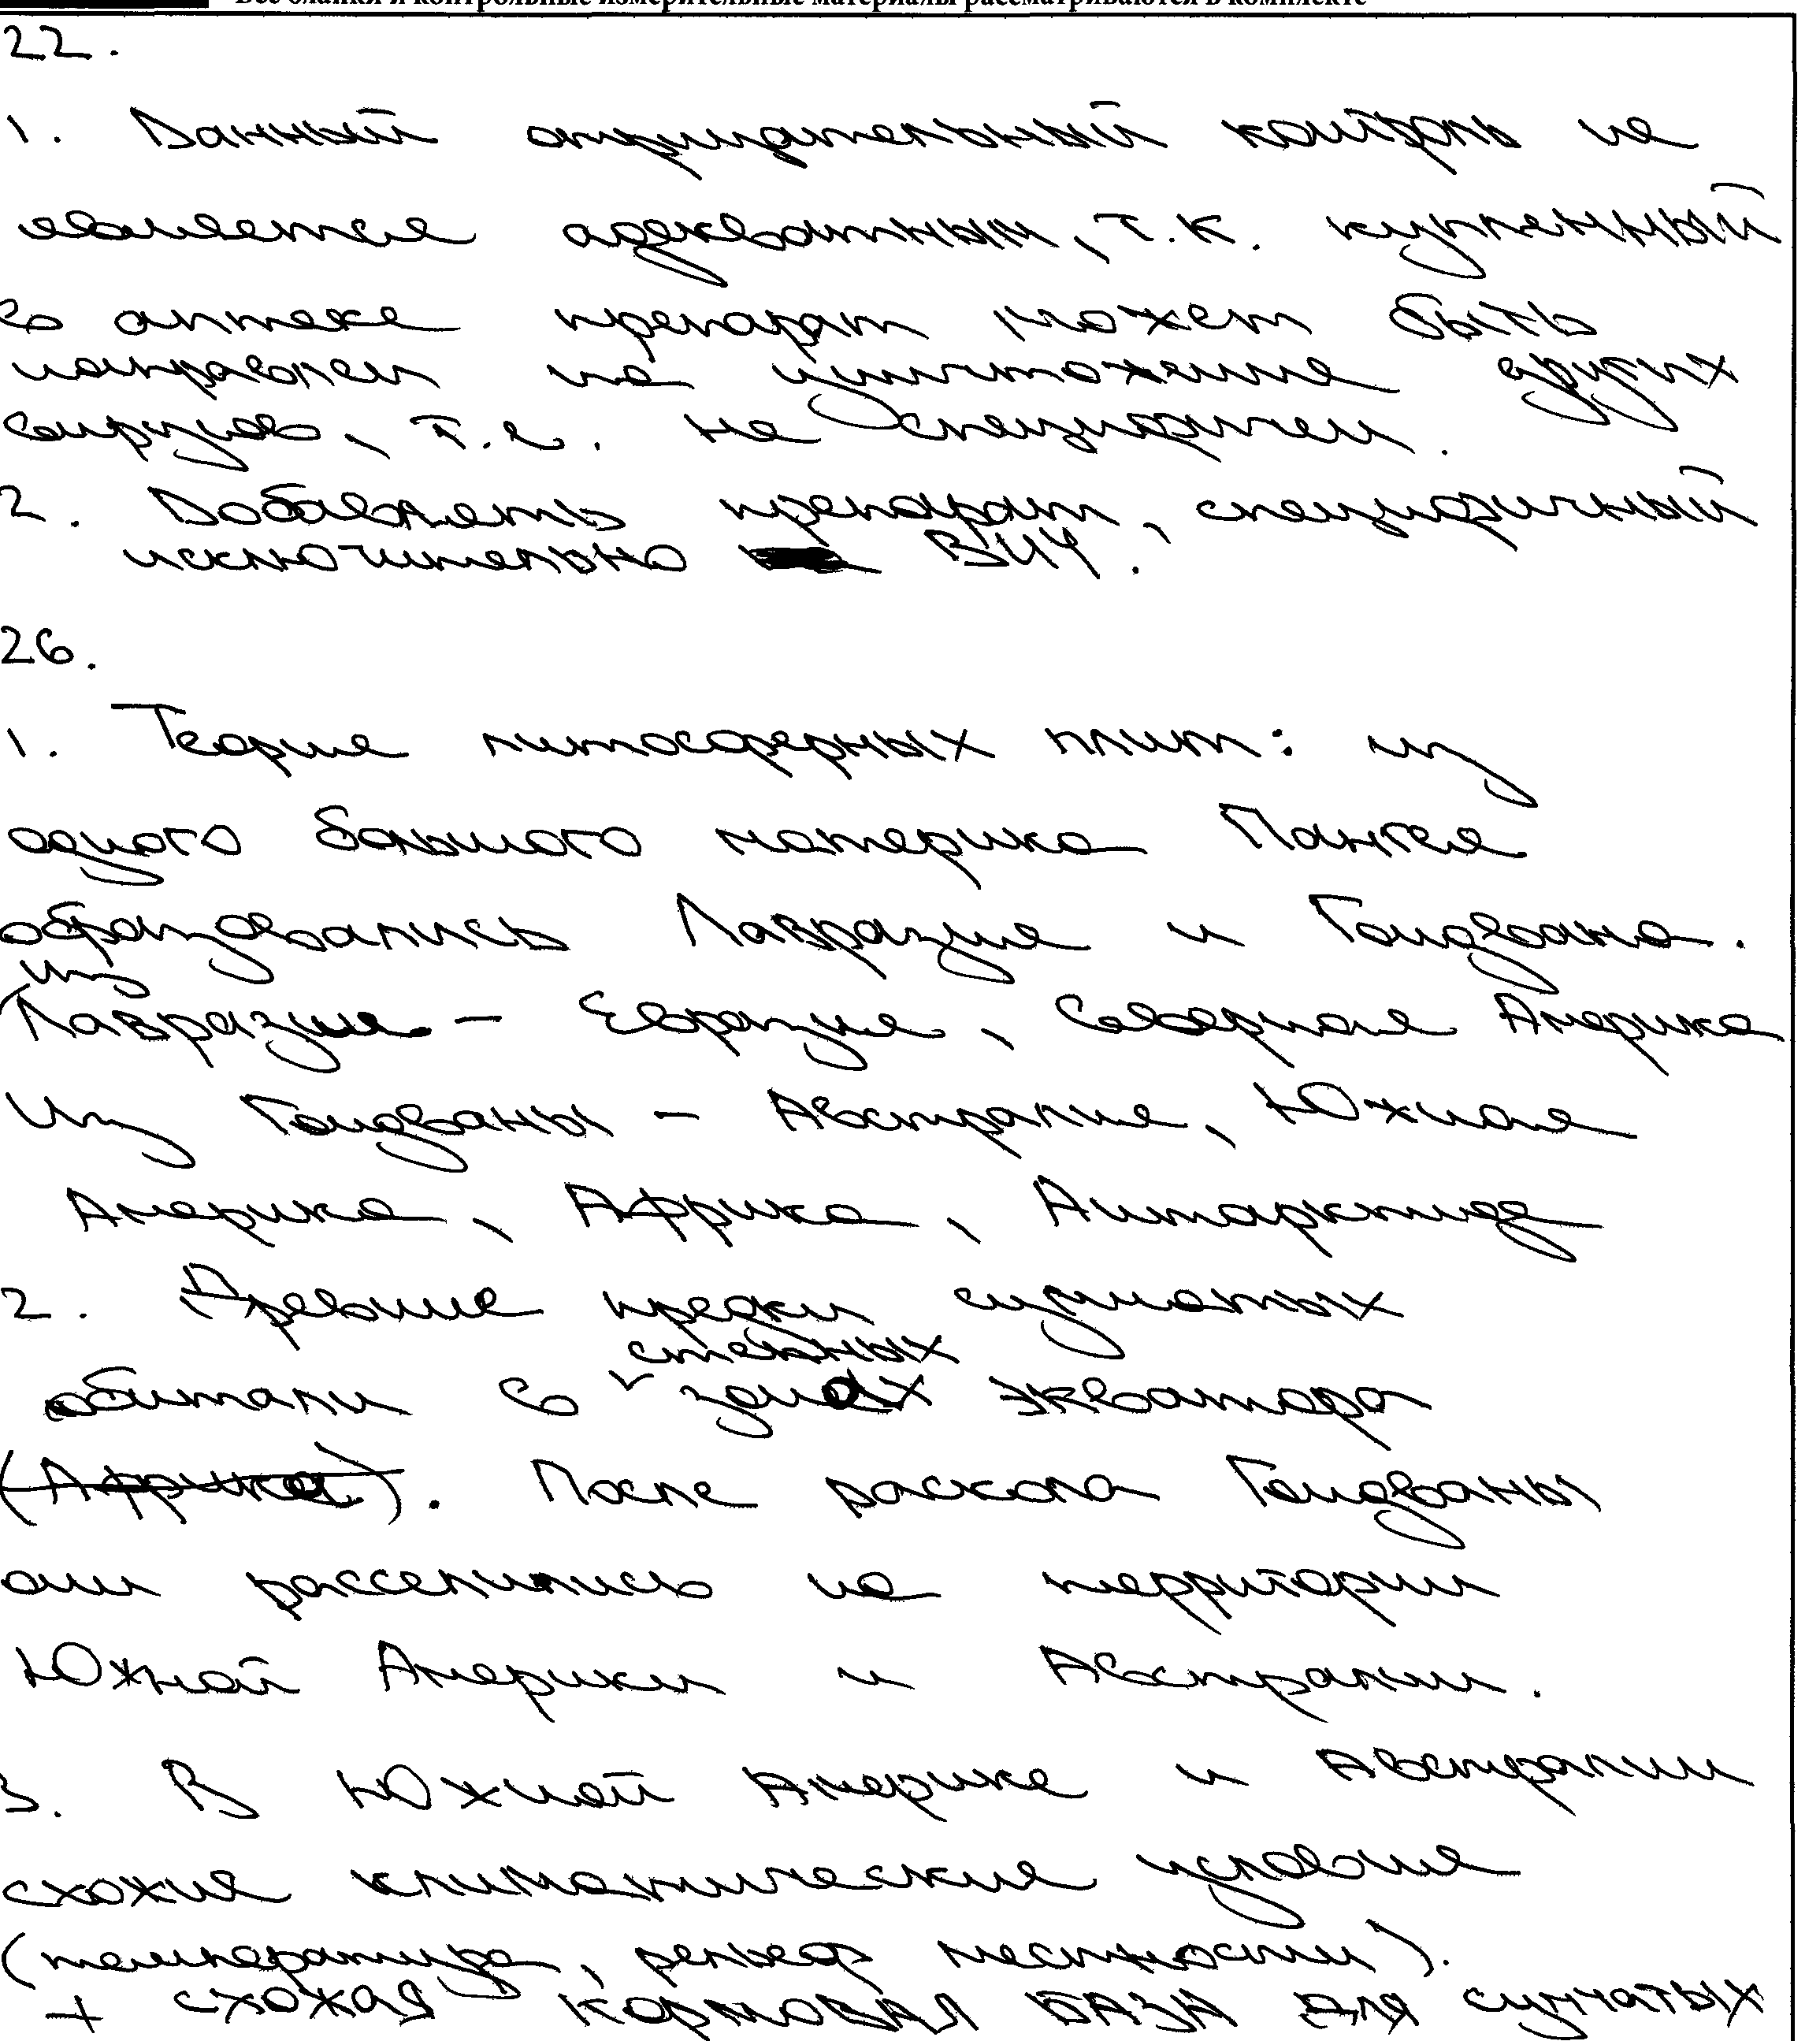 Все бланки и контрольные измерительные материалы рассматриваются в комплекте
22.
1. Данный отрицательный контроль не
является адекватным, т.к. купленный
в аптеке препарат может быть
направлен на уничтожение других
вирусов, т.е. не специфичен.
2. Добавлять препарат, специфичный
исключительно ВИЧ.
26.
1. Теория литосферных плит: из
одного большого материка Пангея
образовались Лавразия и Гондвана.
из
Лавразии - Евразия, Северная Америка
Из Гондваны - Австралия, Южная
Америка, Африка, Антарктида
2. Древние предки сумчатых
степных
обитали в зонах экватора
(Африка). После раскола Гондваны
они расселились на территории
Южной Америки и Австралии.
3. В Южной Америке и Австралии
схожие климатические условия
(температура, рельеф местности).
+ схожая кормовая база для сумчатых